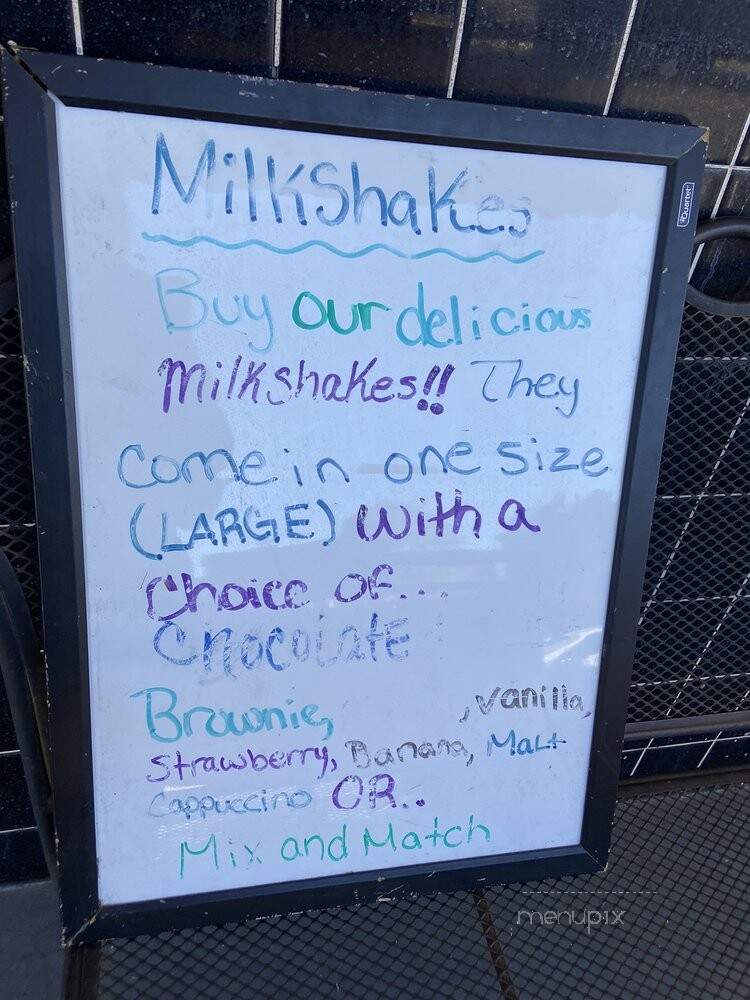 MilkShakes
Buy our delicious
Milkshakes!! They
come in one size
(LARGE) with a
Choice of...
Chocolate
Brownie, , vanilla,
Strawberry, Banana, Malt
Cappuccino OR..
Mix and Match
Quartet
menupix